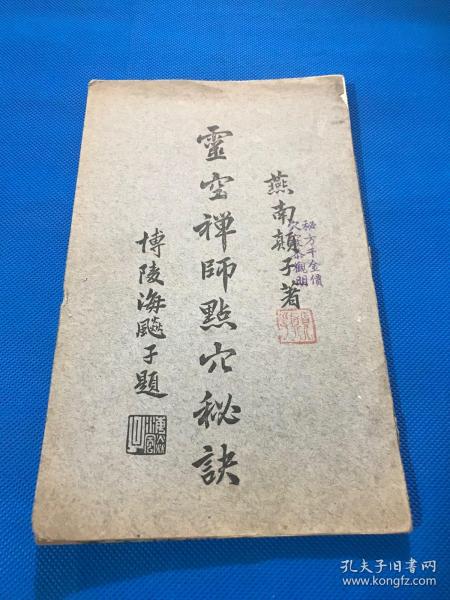 燕南顛子著
秘方千金價
靈空禅師點穴秘訣
博陵海颿子題
孔夫子旧书网
www.kongfz.com